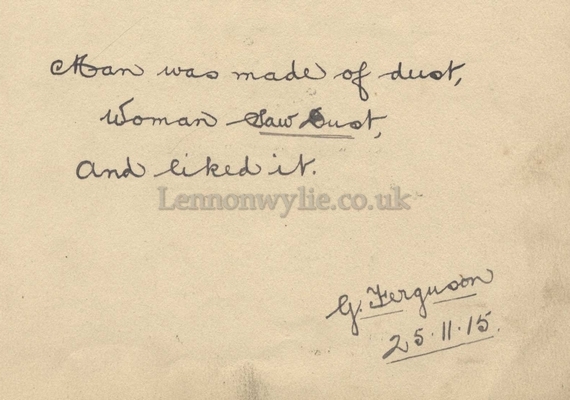 Man was made of dust,
Woman Saw Dust,
And liked it.
Lennonwylie.co.uk
G. Ferguson
25.11.15.